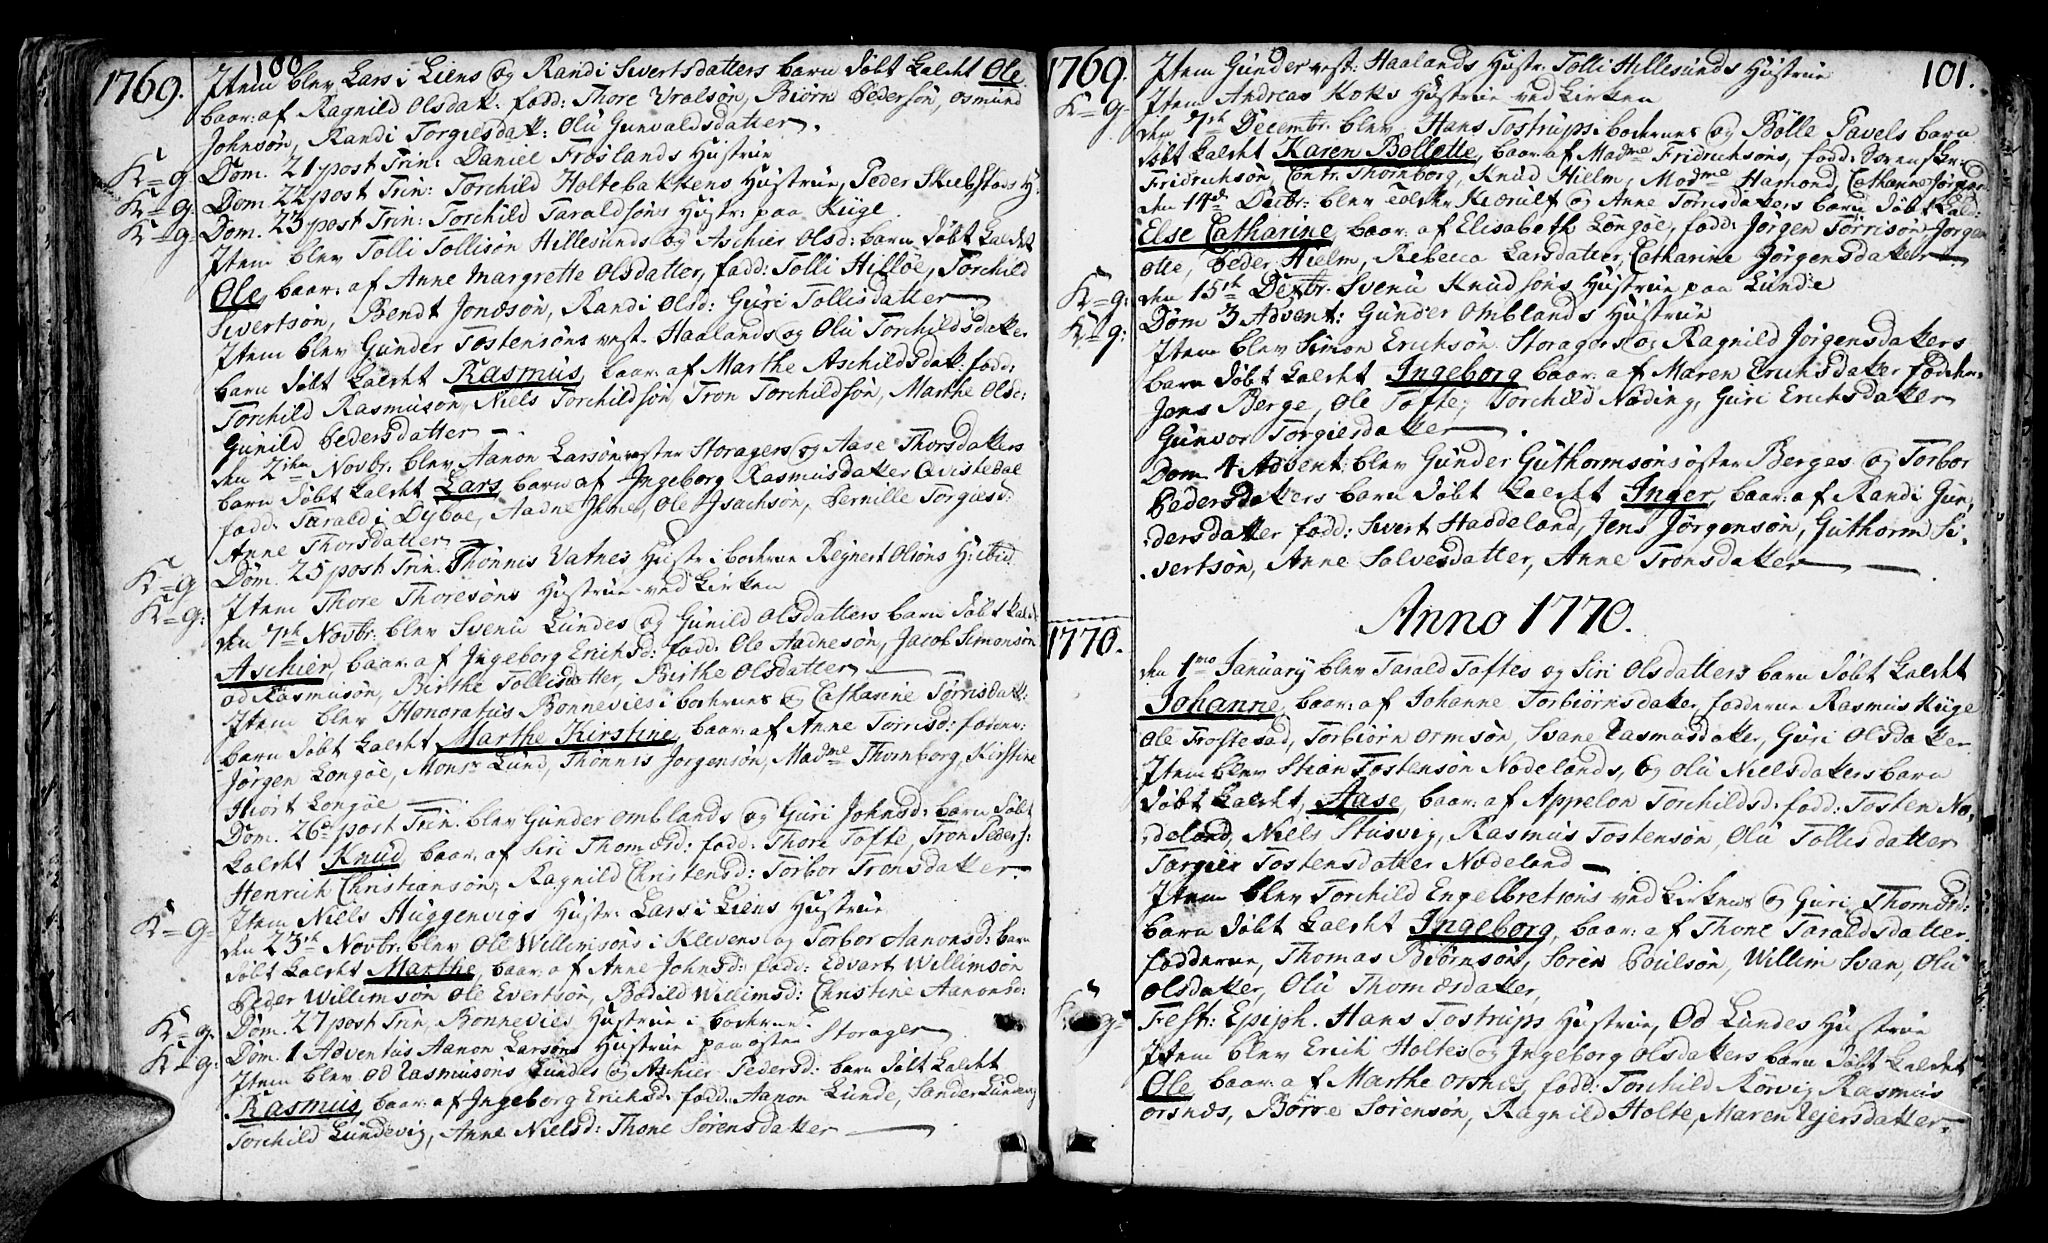 1769.
100
Item blev Lars i Liens og Randi Sivertsdatters barn døbt kaldt Ole
baar: af Ragnild Olsdatt: fadd: Thore Vralsøn, Biørn Pedersøn, Osmund
Johnsøn, Randi Torgiesdatt: Olu Gunvaldsdatter.
K=g Dom. 21 post Trin: Daniel Frøslands Hustrue
K=g. Dom. 22 post Trin: Torchild Holtebakkens Hustrue, Peder Skiebstads H:
K=g. Dom. 23 post Trin: Torchild Taraldsøns Hustr: paa Kuge.
Item blev Tolli Tollisøn Hillesunds og Aschier Olsd: barn døbt kaldt
Ole, baar: af Anne Margrette Olsdatter, fadd: Tolli Hilløe, Torchild
Sivertsøn, Bendt Jonæsøn, Randi Olsd: Guri Tollisdatter
Item blev Gunder Tostensøns vest. Haalands og Olu Torchildsdatter
barn døbt kaldt Rasmus, baar: af Marthe Aschildsdatt: fadd:
Torchild Rasmusøn, Niels Torchildsøn Tron Torchildsøn, Marthe Olsd:
Gunild Pedersdatter
den 2den Novbr: blev Aanon Larsøn øster Storagers og Aase Thorsdatters
barn døbt kaldt Lars barn af Ingeborg Rasmusdatter
fadd: Tarald i Dyboe, Aadne Ime, Ole Isachsøn, Pernille Torgiesd:
Anne Thorsdatter
K=g Dom. 25 post Trin. Thønnis Vatnes Hustr:
K=g: Item Thore Thoresøns Hustrue ved Kirken
den 7de Novbr: blev Svenu Lundes og Gunild Olsdatters barn døbt kaldt
Aschier, baar: af Ingeborg Erichsd: fadd: Ole Aadnesøn, Jacob Simonsøn
od Rasmusøn, Birthe Tollisdatter, Birthe Olsdatter
Item blev Honoratus Bonnevies i og Catharine Tørrisdatt:
barn døbt kaldt Marthe Kirstine, baar: af Anne Tørrisd:
Jørgen Longøe, Monsr Lund, Thønnis Jørgensøn, Madme Thornborg, Kirstine
Hiort Longøe
Dom. 26 post Trin. blev Gunder Omblands og Guri Johnsd: barn døbt
kaldt Knud, baar: af Siri Thomæsd: fadd: Thore Tofte, Tron Peders:
Henrich Christiansøn, Ragnild Christensd: Torbor Tronsdatter.
K=g= Item Niels Huggenvigs Hustr: Lars i Liens Hustrue
den 23de Novbr: blev Ole Willimsøns i Klevens og Torbor Aanonsd: barn
døbt kaldt Marthe, baar: af Anne Johnsd: fadd: Edvart Willimsøn
Peder Willimsøn Ole Evertsøn, Bodild Willimsd: Christine Aanonsd:
K=g. Dom. 27 post Trin, Bonnevies Hustrue i
K=g: Dom. 1 Adventus Aanon Larsøns Hustrue paa øster Storager
Item blev Od Rasmusøns Lundes og Aschier Pedersd: barn døbt kaldt
Rasmus, baar: af Ingeborg Erichsd: fadd: Aanon Lunde, Sander Lundevig
Torchild Lundevig, Anne Nielsd: Thone Sørensdatter
1769.
101.
K=g Item Gunder vest: Haalands Hustr: Tolli Hillesunds Hustrue
Item Andreas Koks Hustrue ved Kirken
den 7de Decembr. blev Hans Tostrups i og Bolle Pavels barn
døbt kaldt Karen Bollette, baar: af Madme Fridrichsøns, fadd:
Fridrichsøn, Contr. Thornborg, Knud Hielm, Madme Hamond, Cathanne
den 14de Decbr: blev Kierulf og Anne Tørrisdatters barn døbt kald:
Else Catharine, baar: af Elisabeth Longøe, fadd: Jørgen Tørrisøn Jørgen
Otte, Peder Hielm, Rebecca Larsdatter, Catharine Jørgensdatter
K=g: den 15de Decbr. Svenu Knudsøns Hustrue paa Lunde
K=g: Dom 3 Advent: Gunder Omblands Hustrue
Item blev Simon Erichsøn Storagers og Ragnild Jørgensdatters
barn døbt kaldt Ingeborg baar: af Maren Erichsdatter
Jens Berge, Ole Tofte, Torchild Noding, Guri Erichsdatter
Gunvor Torgiersdatter
Dom. 4 Advent: blev Gunder Guthormsøns øster Berges og Torbor
Pedersdatters barn døbt kaldt Inger, baar: af Randi Gun-
dersdatter fadd: Sivert Haddeland, Jens Jørgensøn, Guthorm Si-
vertsøn, Anne Salvesdatter, Anne Tronsdatter
Anno 1770.
1770.
den 1mo January blev Tarald Toftes og Siri Olsdatters barn døbt kaldt
Johanne, baar: af Johanne Torbiørnsdatter, fadderne Rasmus Kuge
Ole Trostesad, Torbiørn Ormsøn, Svane Rasmusdatter, Guri Olsdatter
Item blev Stian Tostensøn Nodelands, og Olu Nielsdatters barn
døbt kaldt, Aase, baar: af Appelon Torchildsd: fadd: Tosten No-
deland, Niels Stusvig, Rasmus Tostensøn, Olu Tollisdatter
Targier Tostensdatter Nodeland
Item blev Torchild Engelbretsøns ved Kirkens og Guri Thomæsd:
barn døbt kaldt Ingeborg, baar: af Thone Taraldsdatter
fadderne, Thomas Biørnsøn, Søren Poulsøn, Willim Svan, Olu
Olsdatter, Olu Thomæsdatter,
K=g= Fest: Epiph. Hans Tostrups Hustrue, Od Lundes Hustrue
Item blev Erich Holtes og Ingeborg Olsdatters barn døbt kaldt
Ole baar: af Marthe Orsnes, fadd: Torchild Rørvig, Rasmus
Orsnæs, Børre Sørensøn, Ragnild Holte, Maren Rejersdatter.